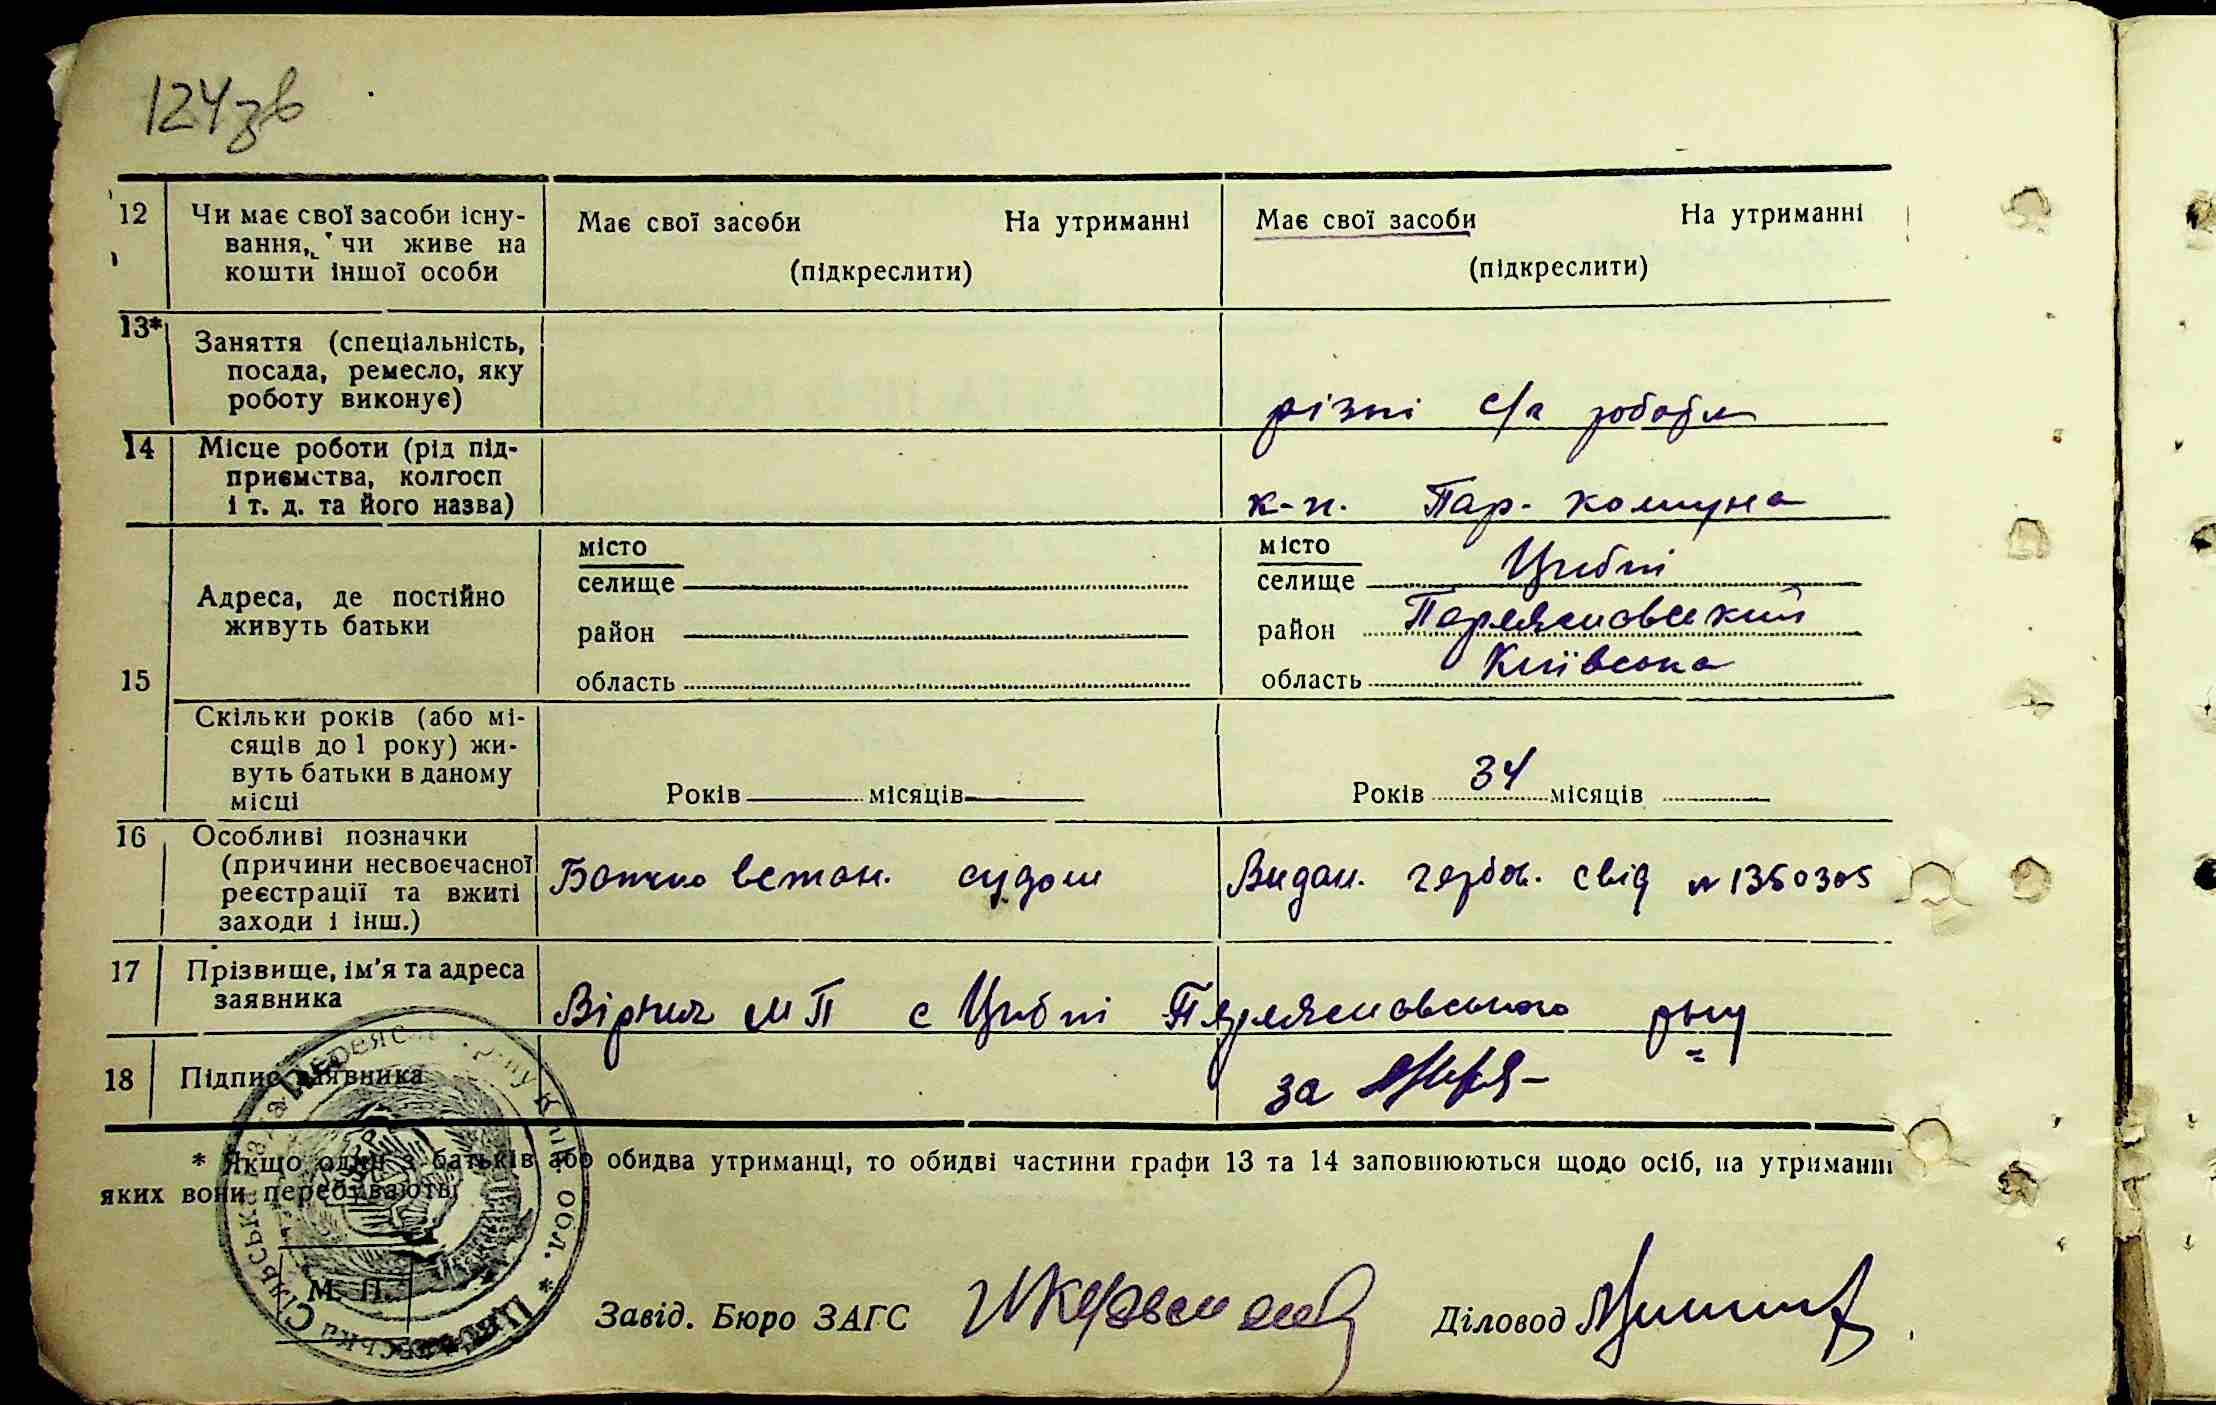 124зв
12 Чи має свої засоби існу-
вання, чи живе на
кошти іншої особи
Має свої засоби На утриманні
(підкреслити)
Має свої засоби На утриманні
(підкреслити)
13* Заняття (спеціальність,
посада, ремесло, яку
роботу виконує)
різні с/г роботи
14 Місце роботи (рід під-
приємства, колгосп
і т. д. та його назва)
к-п. Пар. комуна
15 Адреса, де постійно
живуть батьки
місто
селище
район
область
місто
селище Циблі
район Переяславський
область Київська
Скільки років (або мі-
сяців до 1 року) жи-
вуть батьки в даному
місці
Років місяців
Років 34 місяців
16 Особливі позначки
(причини несвоєчасної
реєстрації та вжиті
заходи і інш.)
встан. судом
Видан. гербов. свід № 1350305
17 Прізвище, ім'я та адреса
заявника
МП с Циблі Переяславського р-ну
18 Підпис заявника
за
* Якщо один з батьків або обидва утриманці, то обидві частини графи 13 та 14 заповнюються щодо осіб, на утриманні
яких вони перебувають.
М. П.
Завід. Бюро ЗАГС Діловод